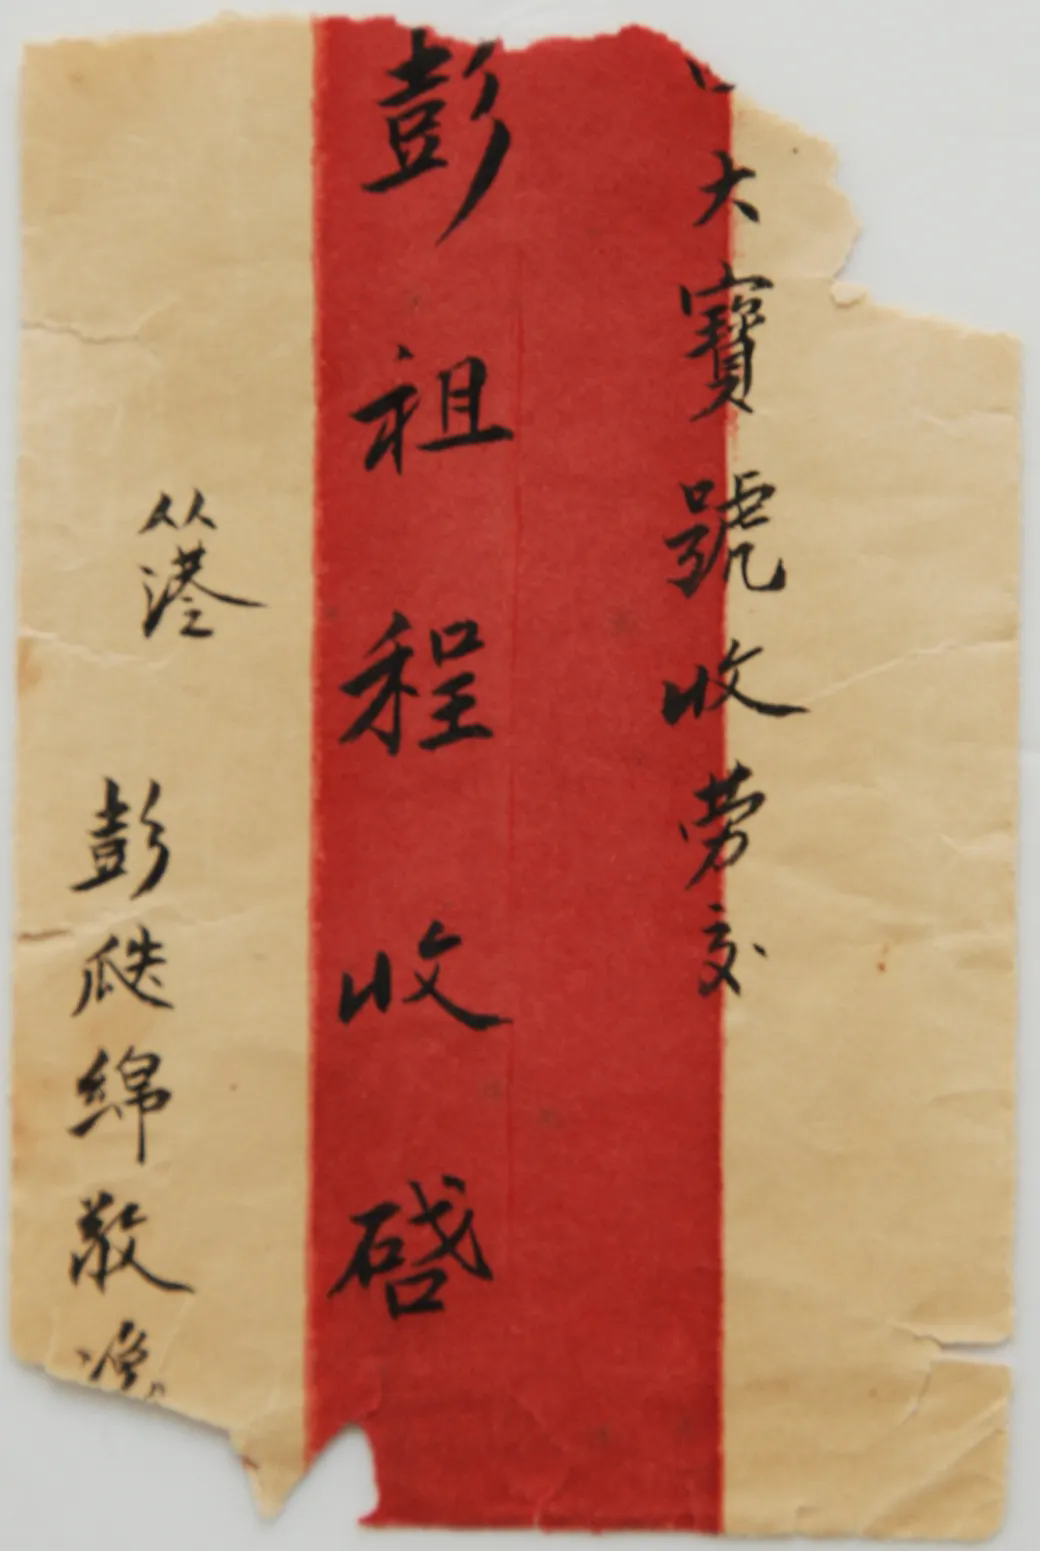 大寶號收劳交
彭祖程收啓
从港
彭瓞綿敬